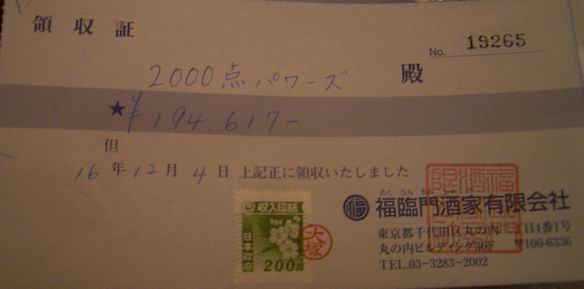 領収証
No. 19265
2000点パワーズ 殿
★ ¥194,617-
但
16年12月4日 上記正に領収いたしました
収入印紙
日本政府
200円
大塚
ふくりんもん
福 福臨門酒家有限会社
東京都千代田区丸の内 丁目4番1号
丸の内ビルディング36F 〒100-6336
TEL.03-3283-2002